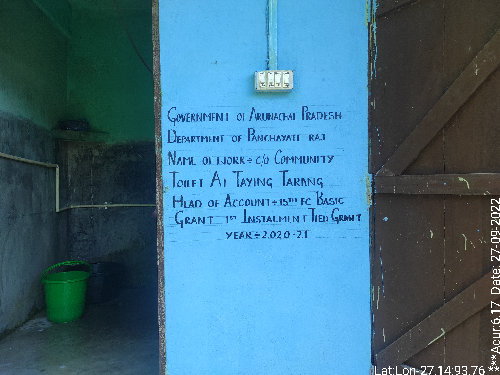 GOVERNMENT OF ARUNACHAL PRADESH
DEPARTMENT OF PANCHAYATI RAJ
NAME OF WORK ÷ C/O COMMUNITY
TOILET AT TAYING TARANG
HEAD OF ACCOUNT ÷ 15TH FC BASIC
GRANT 1ST INSTALMENT TIED GRANT
YEAR ÷ 2020-21
Lat:Lon-27.14:93.76
***Acur:6.17, Date: 27-09-2022